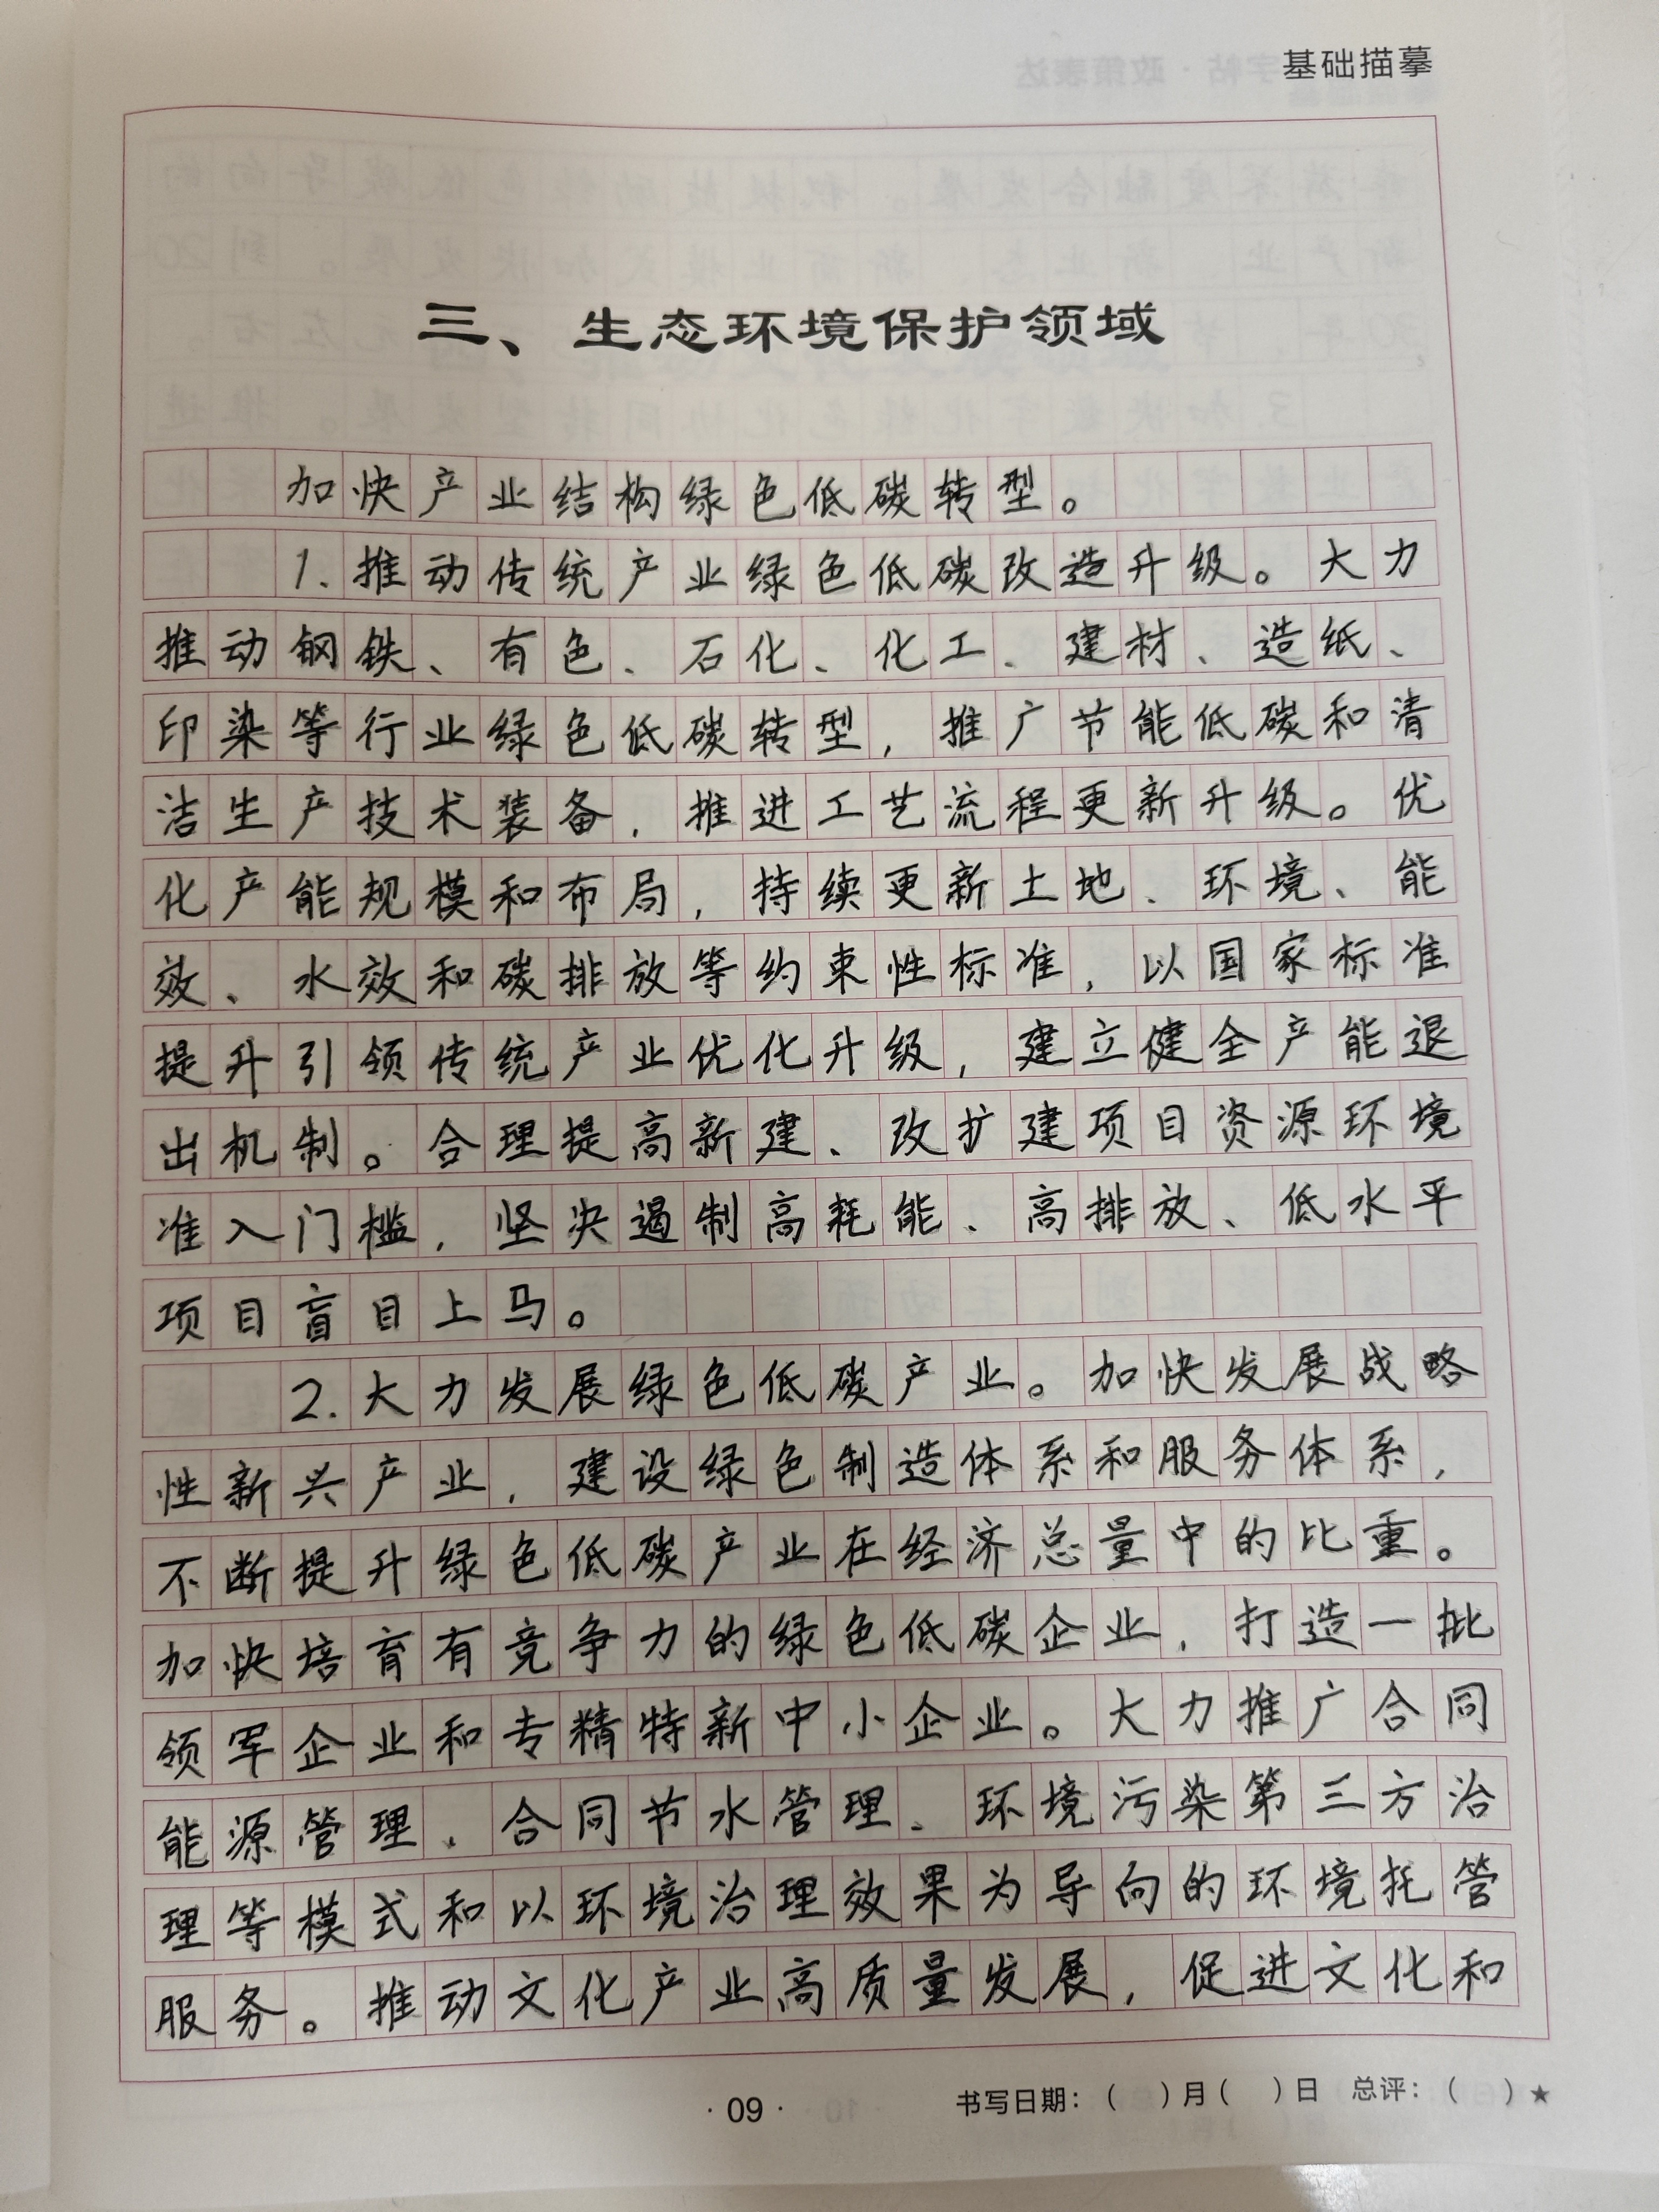 基础描摹
三、生态环境保护领域
加快产业结构绿色低碳转型。
1.推动传统产业绿色低碳改造升级。大力
推动钢铁、有色、石化、化工、建材、造纸、
印染等行业绿色低碳转型，推广节能低碳和清
洁生产技术装备，推进工艺流程更新升级。优
化产能规模和布局，持续更新土地、环境、能
效、水效和碳排放等约束性标准，以国家标准
提升引领传统产业优化升级，建立健全产能退
出机制。合理提高新建、改扩建项目资源环境
准入门槛，坚决遏制高耗能、高排放、低水平
项目盲目上马。
2.大力发展绿色低碳产业。加快发展战略
性新兴产业，建设绿色制造体系和服务体系，
不断提升绿色低碳产业在经济总量中的比重。
加快培育有竞争力的绿色低碳企业，打造一批
领军企业和专精特新中小企业。大力推广合同
能源管理、合同节水管理、环境污染第三方治
理等模式和以环境治理效果为导向的环境托管
服务。推动文化产业高质量发展，促进文化和
·09·
书写日期：（ ）月（ ）日 总评：（ ）★